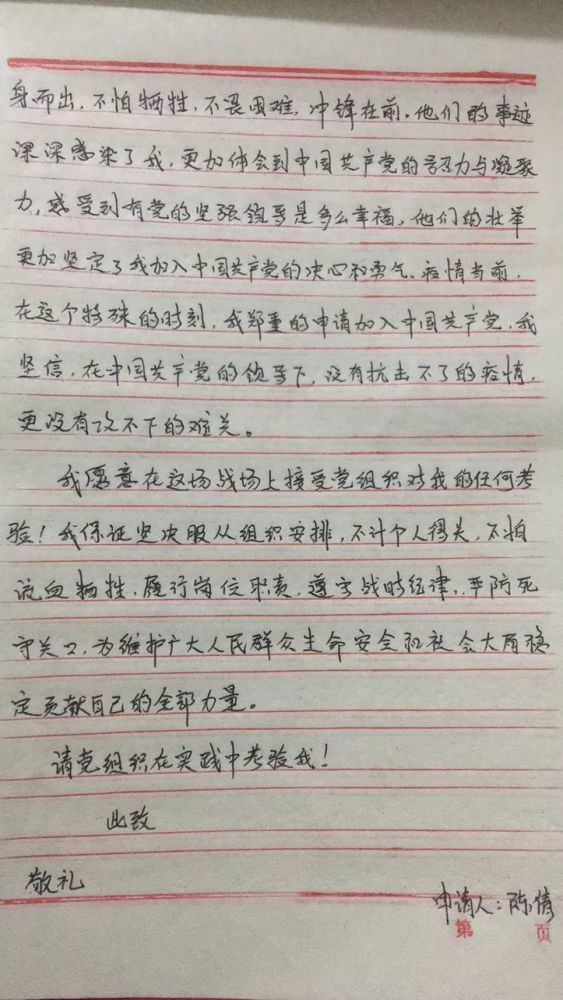 身而出，不怕牺牲，不畏困难，冲锋在前。他们的事迹
深深感染了我，更加体会到中国共产党的号召力与凝聚
力，感受到有党的坚强领导是多么幸福，他们的壮举
更加坚定了我加入中国共产党的决心和勇气。疫情当前，
在这个特殊的时刻，我郑重的申请加入中国共产党，我
坚信，在中国共产党的领导下，没有抗击不了的疫情，
更没有攻不下的难关。
我愿意在这场战场上接受党组织对我的任何考
验！我保证坚决服从组织安排，不计个人得失，不怕
流血牺牲，履行岗位职责，遵守战时纪律，严防死
守关口，为维护广大人民群众生命安全和社会大局稳
定贡献自己的全部力量。
请党组织在实践中考验我！
此致
敬礼
申请人：陈倩
第 页